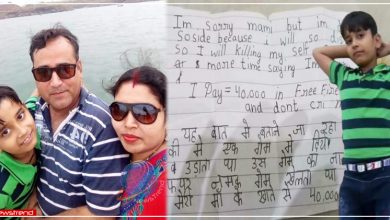 Im sorry mami but im
Soside because i will so
so I will killing my self
more time saying Im
I Pay=40,000 in Free Fire
and dont cri
यह बात मे बताने जा रहा
की मै एक गेम मे दिया
उडाता था उस गेम का
फायर नामक गेम खेलता था
मेरी माँ के खाते से 40,000
newstrend